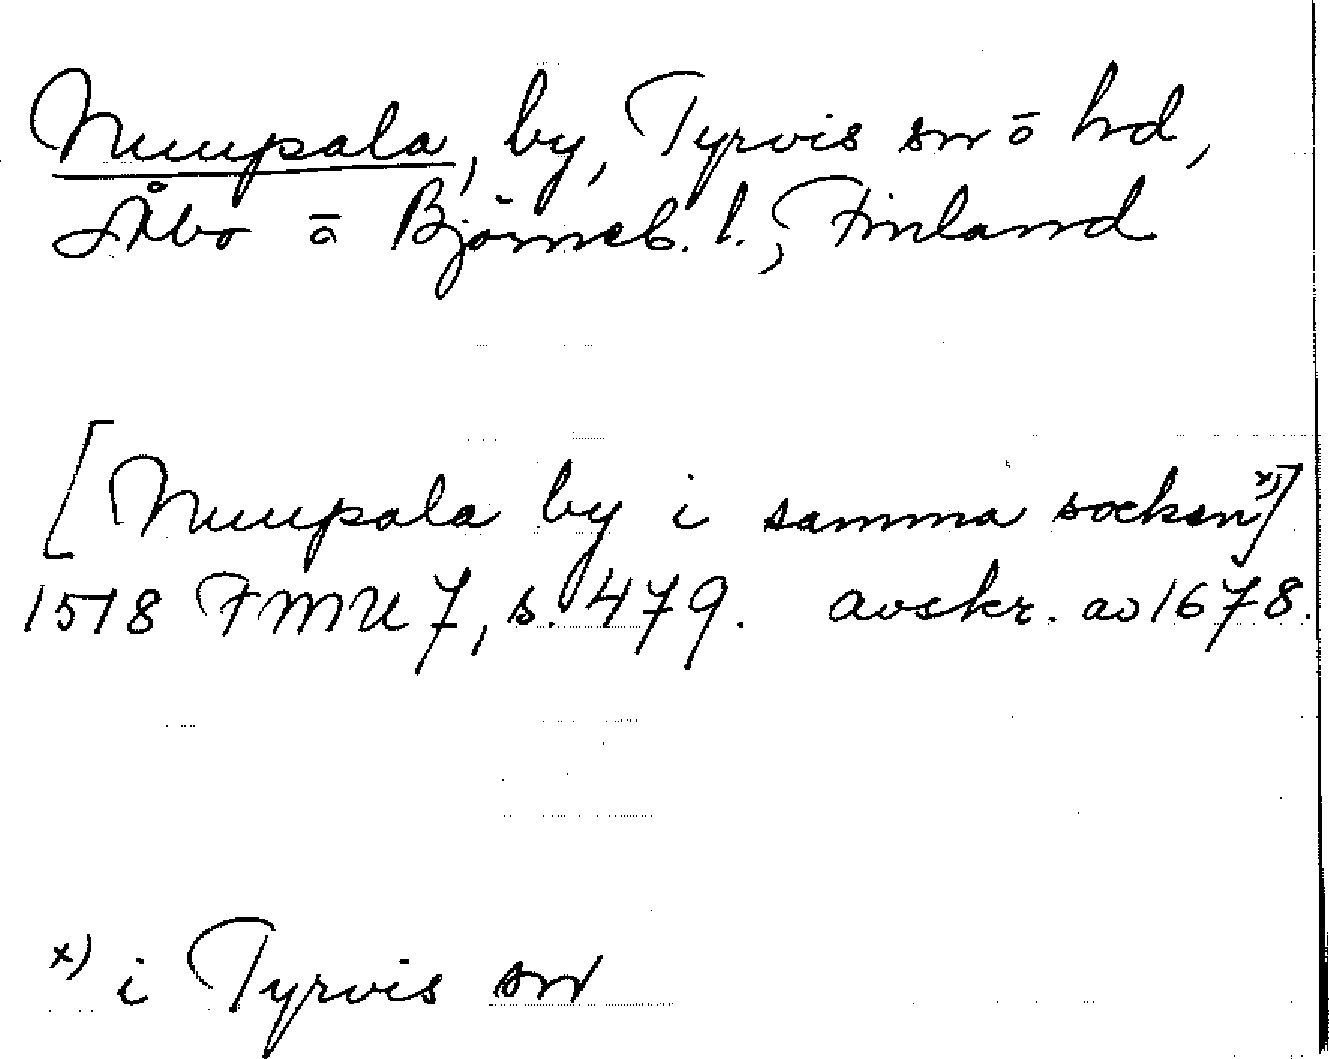 Nuupala, by, Tyrvis sn o hd,
Åbo o Björneb. l., Finland
[Nuupala by i samma socken x)]
1518 FMU 7, s. 479. avskr. av 1678.
x) i Tyrvis sn